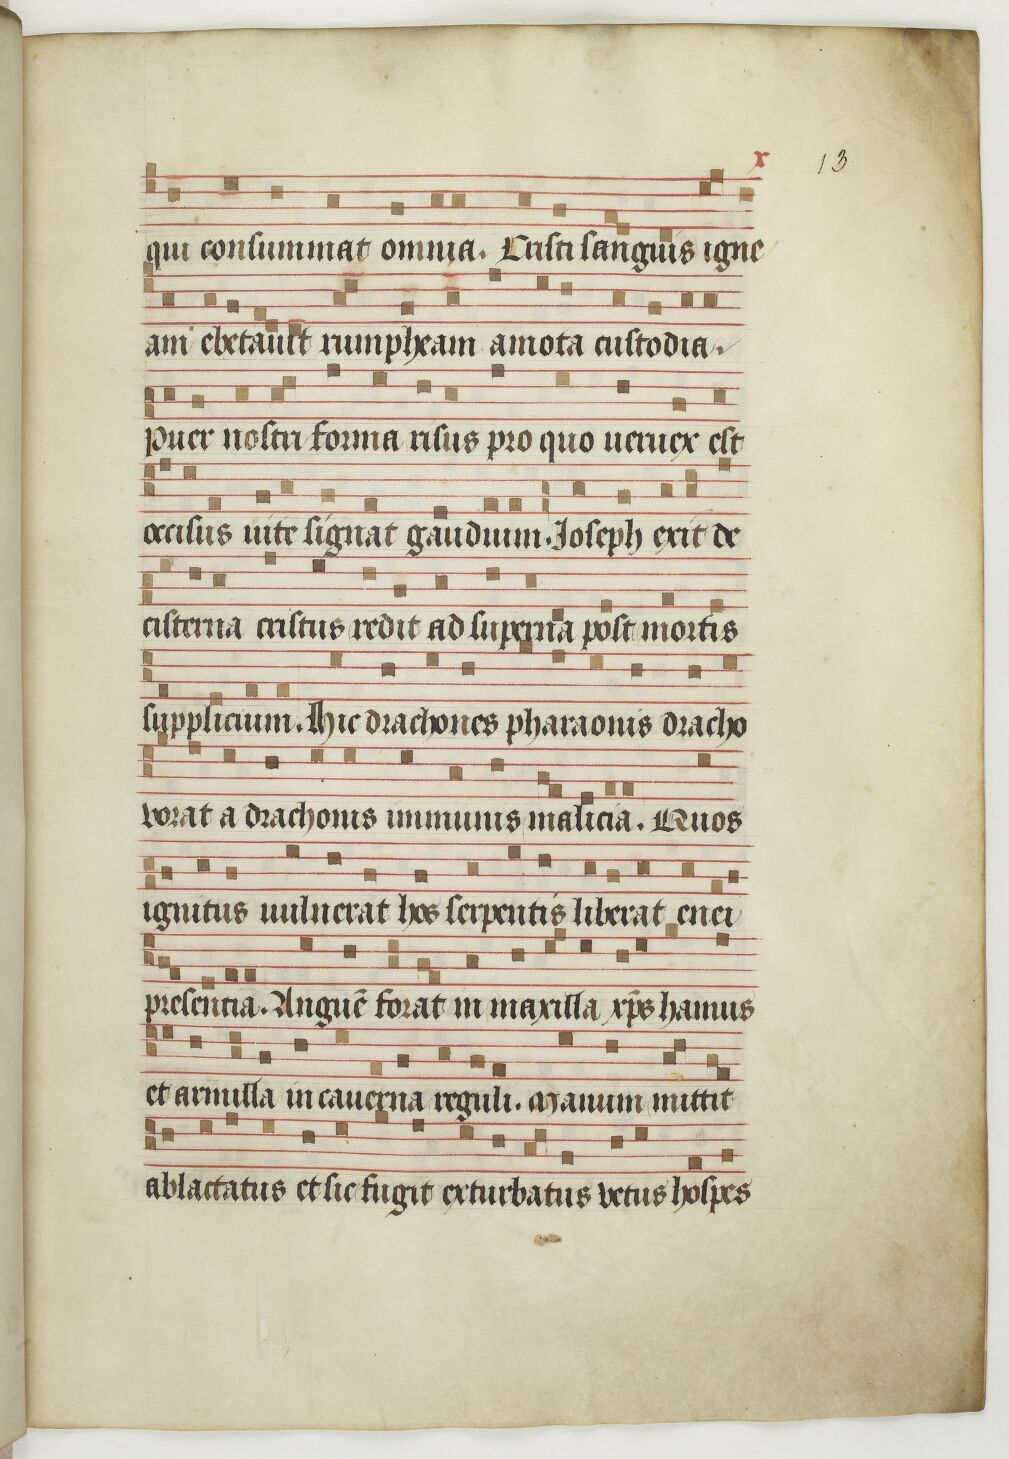 x 13
qui consummat omnia. Cristi sanguis igne
am ebetauit rumpheam amota custodia.
Puer nostri forma risus pro quo ueruex est
occisus uite signat gaudium. Ioseph exit de
cisterna cristus redit ad superna post mortis
supplicium. Hic drachones pharaonis dracho
vorat a drachonis immunis malicia. Quos
ignitus uulnerat hos serpentis liberat enei
presentia. Anguē forat in maxilla xp̄s hamus
et armilla in cauerna reguli. Manum mittit
ablactatus et sic fugit exturbatus vetus hospes